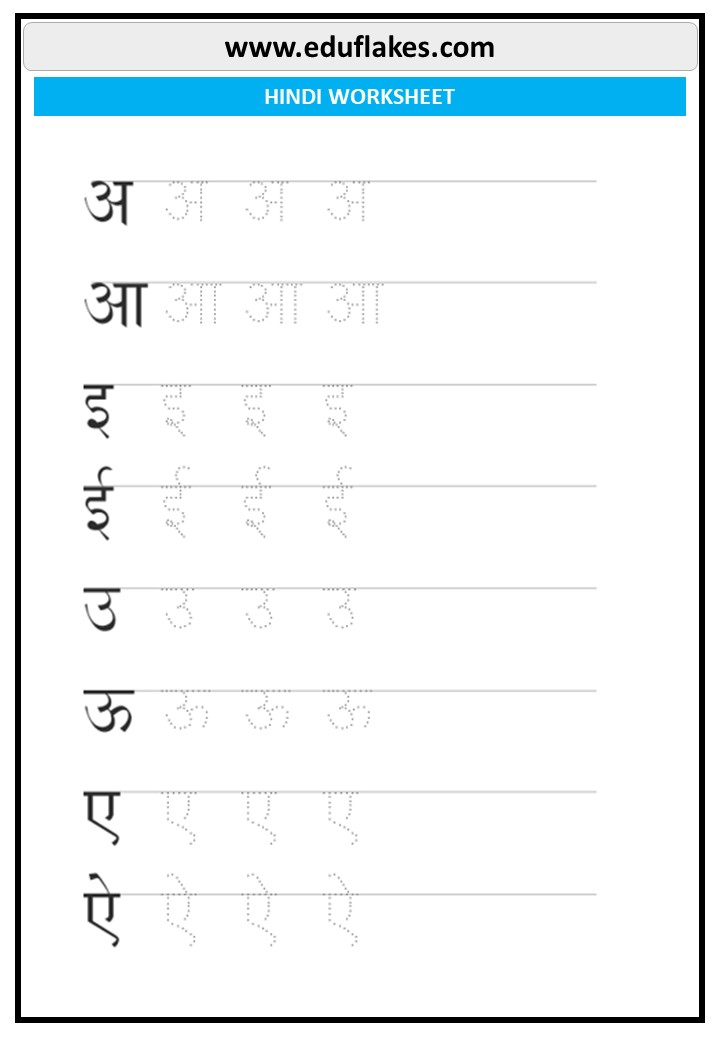 www.eduflakes.com
HINDI WORKSHEET
अ अ अ अ
आ आ आ आ
इ इ इ इ
ई ई ई ई
उ उ उ उ
ऊ ऊ ऊ ऊ
ए ए ए ए
ऐ ऐ ऐ ऐ